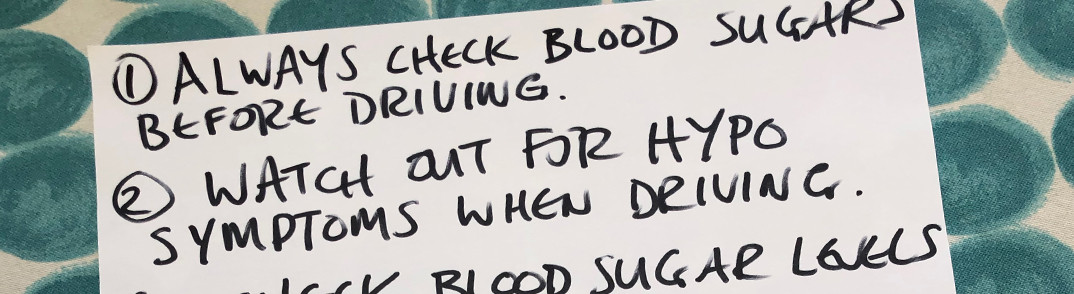 ① ALWAYS CHECK BLOOD SUGARS
BEFORE DRIVING.
② WATCH OUT FOR HYPO
SYMPTOMS WHEN DRIVING.
BLOOD SUGAR LEVELS